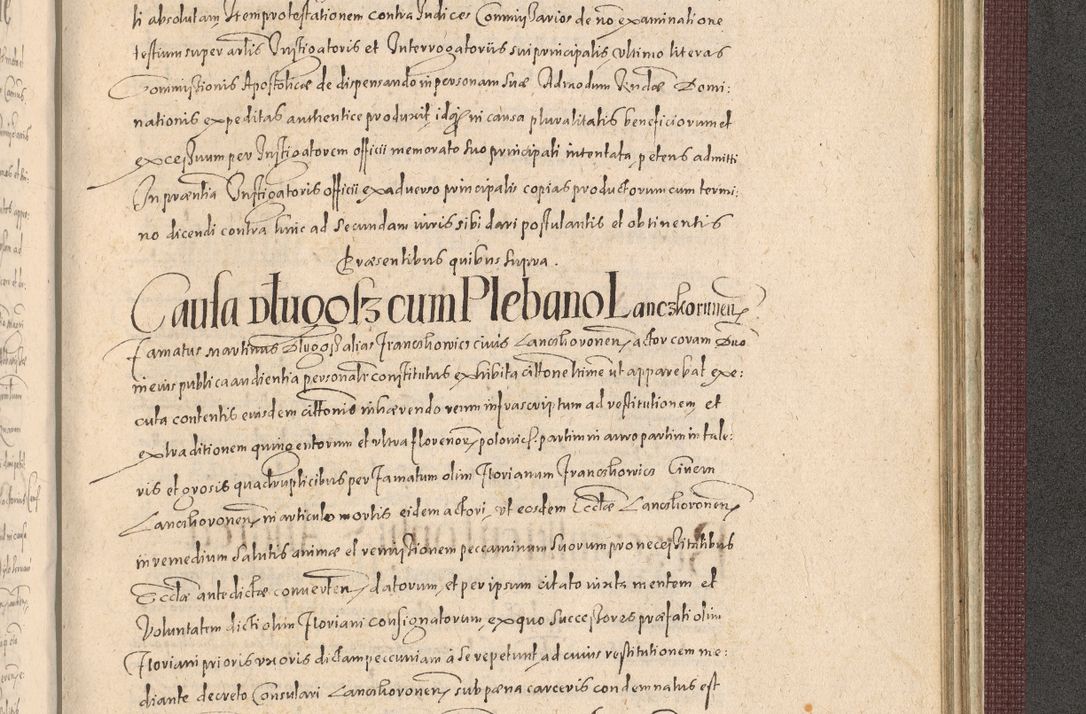 li absolutam Item protestationem contra Iudices Commissarios de no examinatione
testium super artis Instigatoris et Interrogatoriis sui principalis, ultimo literas
Commissionis Apostolicæ de dispensando in personam suæ Admodum Rndæ Domi:
nationis expeditas authentice produxit, idq in causa pluralitatis beneficiorum et
excessuum per Instigatorem officii memorato suo principali intentata, petens admitti
In præntia Instigatoris officii ex adverso principalis copias productorum cum termi:
no dicendi contra hinc ad secundam iuris sibi dari postulantis et obtinentis
Præsentibus quibus supra.
Causa Długosz cum Plebano Lanczkorunen
Famatus Martinus Długosz alias Franczkowicz civis Lanczkoronen, actor coram Duo
in eius publica audientia personalr constitutus exhibita citt̃one ltime ut apparebat exe:
cuta contentis eiusdem citt̃onis inhærendo reum infrascriptum ad restitutionem et
extraditionem quingentorum et ultra florenor polonic. partim in auro partim in tale:
ris et grosis quadruplicibus per Famatum olim Florianum Franczkowicz Civem
Lanczkoronen in articulo mortis eidem actori, ut eosdem Ecctæ Lanczkoronen
in remedium salutis animæ et remissionem peccaminum suorum pro necessitatibus
Ecctæ antedictæ converten, datorum, et per ipsum citato iuxta mentem et
Voluntatem dicti olim Floriani consignatorum, ex quo successores præfati olim
Floriani prioris uxoris dictam peccuniam a se repetunt, ad cuius restitutionem me:
diante decreto Consulari Lanczkoronen, sub pæna carceris condemnatus est